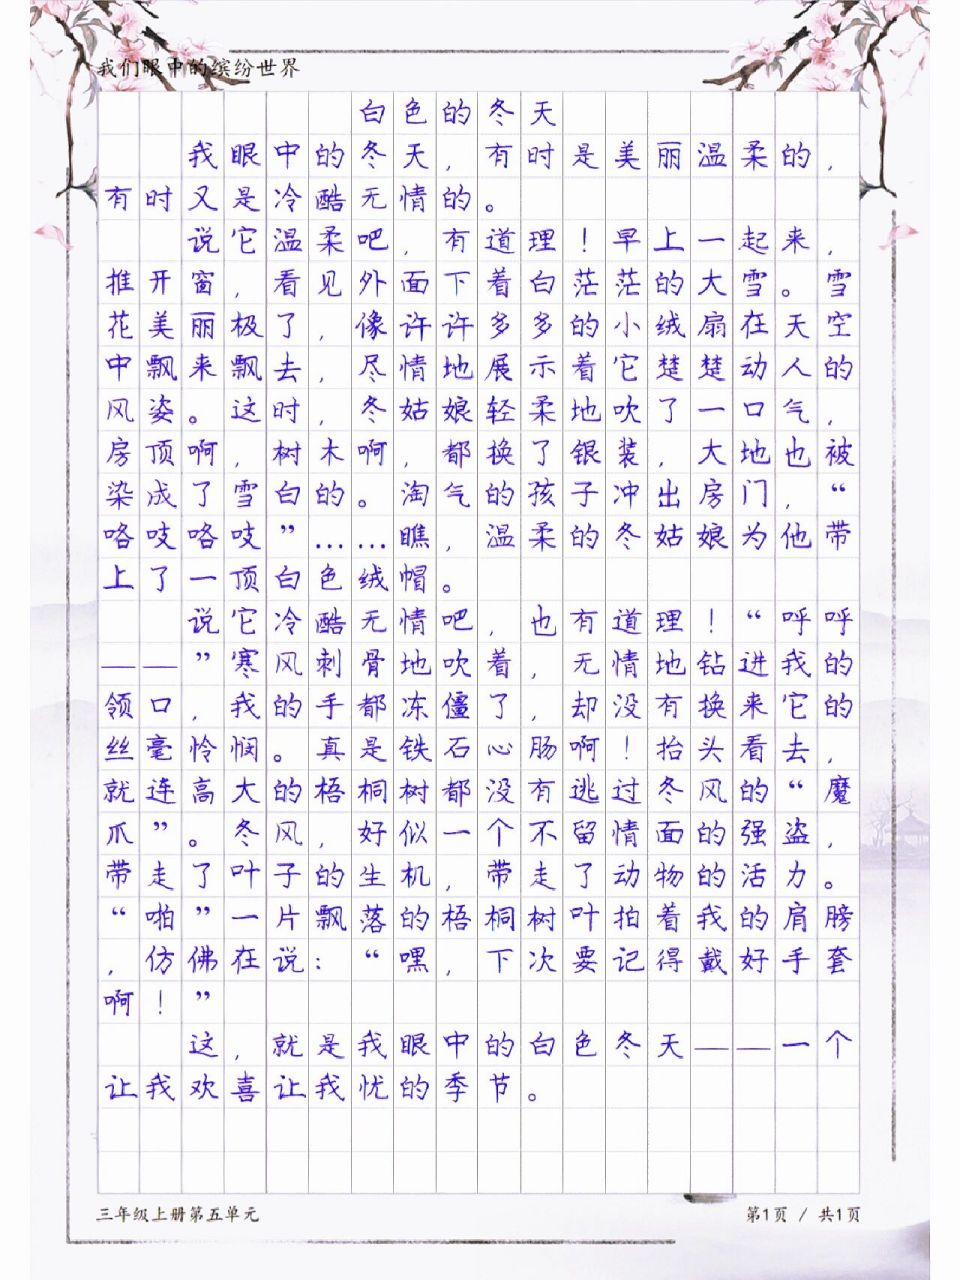 我们眼中的缤纷世界
白色的冬天
我眼中的冬天，有时是美丽温柔的，
有时又是冷酷无情的。
说它温柔吧，有道理！早上一起来，
推开窗，看见外面下着白茫茫的大雪。雪
花美丽极了，像许许多多的小绒扇在天空
中飘来飘去，尽情地展示着它楚楚动人的
风姿。这时，冬姑娘轻柔地吹了一口气，
房顶啊，树木啊，都换了银装，大地也被
染成了雪白的。淘气的孩子冲出房门，“
咯吱咯吱”……瞧，温柔的冬姑娘为他带
上了一顶白色绒帽。
说它冷酷无情吧，也有道理！“呼呼
——”寒风刺骨地吹着，无情地钻进我的
领口，我的手都冻僵了，却没有换来它的
丝毫怜悯。真是铁石心肠啊！抬头看去，
就连高大的梧桐树都没有逃过冬风的“魔
爪”。冬风，好似一个不留情面的强盗，
带走了叶子的生机，带走了动物的活力。
“啪”一片飘落的梧桐树叶拍着我的肩膀
，仿佛在说：“嘿，下次要记得戴好手套
啊！”
这，就是我眼中的白色冬天——一个
让我欢喜让我忧的季节。
三年级上册第五单元
第1页 / 共1页